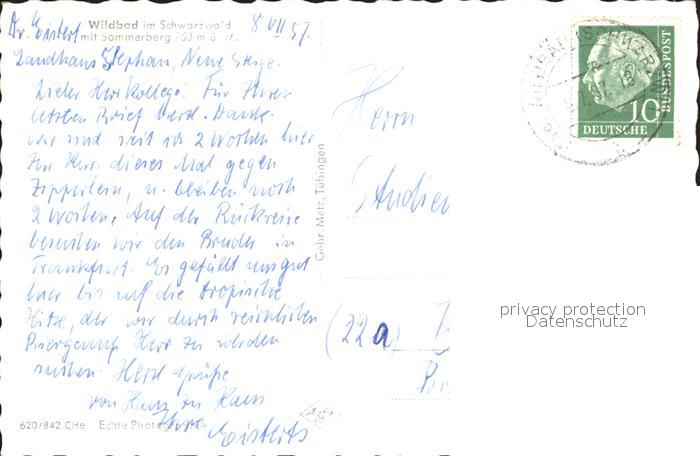 Wildbad im Schwarzwald
mit Sommerberg 750 m ü. M.
8 VII 57.
Dr. Eistert
Landhaus Stephan, Neue Steige.
Lieber Herr Kollege! Für Ihren
letzten Brief herzl. Dank.
Wir sind seit ca 2 Wochen hier
zur Kur, dieses Mal gegen
Zipperlein, u. bleiben noch
2 Wochen. Auf der Rückreise
besuchen wir den Bruder in
Frankfurt. Es gefällt uns gut
hier bis auf die tropische
Hitze, der wir durch reichlichen
Biergenuß Herr zu werden
suchen. Herzl Grüße
von Haus zu Haus
Ihre Eisterts
620/842 CHe Echte Photographie
Gebr. Metz, Tübingen
Herrn
Studien
(22a)
DEUTSCHE
BUNDESPOST
10
privacy protection
Datenschutz